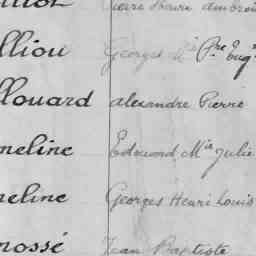 Pierre Henri Ambroi
lliou Georges Mie Pre Eugn
llouard Alexandre Pierre
meline Edouard Mie Julie
meline Georges Henri Louis
mossé Jean Baptiste